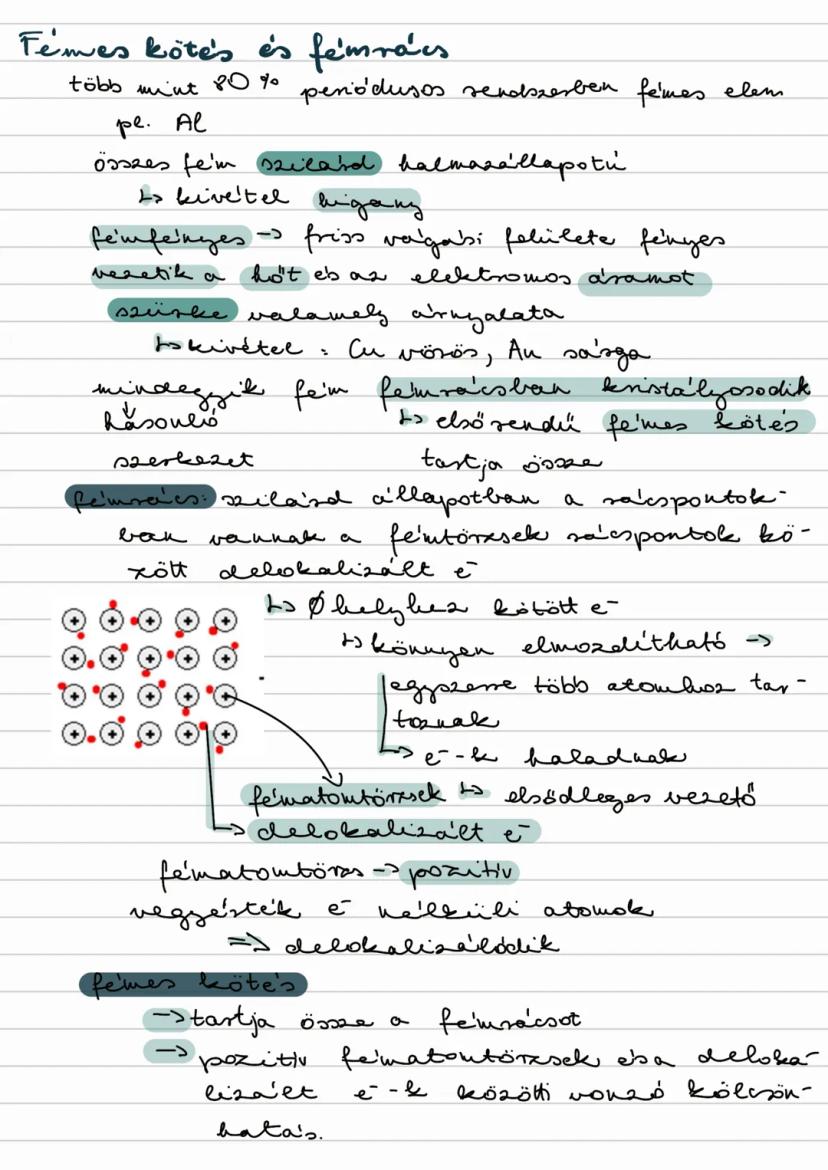 Fémes kötés és fémrács
több mint 80% periódusos rendszerben fémes elem
pl. Al
összes fém szilárd halmazállapotú
↳ kivétel higany
fémfényes → friss vágási felülete fényes
vezetik a hőt és az elektromos áramot
szürke valamely árnyalata
↳ kivétel: Cu vörös, Au sárga
mindegyik fém fémrácsban kristályosodik
↓
hasonló ↳ elsőrendű fémes kötés
szerkezet tartja össze
fémrács: szilárd állapotban a rácspontok-
ban vannak a fémtörzsek rácspontok kö-
zött delokalizált e⁻
↳ Ø helyhez kötött e⁻
↳ könnyen elmozdítható →
egyszerre több atomhoz tar-
toznak
→ e⁻-k haladnak
fématomtörzsek ↳ elsődleges vezető
→ delokalizált e⁻
fématomtörzs → pozitív
vegyérték e⁻ nélküli atomok
⇒ delokalizálódik
fémes kötés
→ tartja össze a fémrácsot
→ pozitív fématomtörzsek és a deloka-
lizált e⁻-k közötti vonzó kölcsön-
hatás.